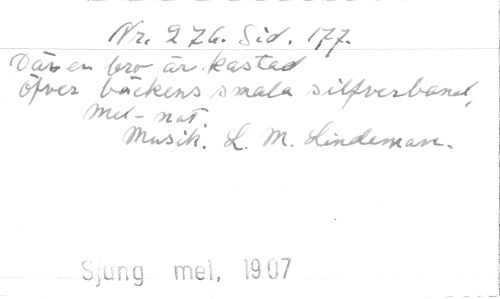 Nr. 276. Sid. 177.
Där en bro är kastad
öfver bäckens smala silfverband,
Mel-not
Musik. L. M. Lindeman.
Sjung mel, 1907